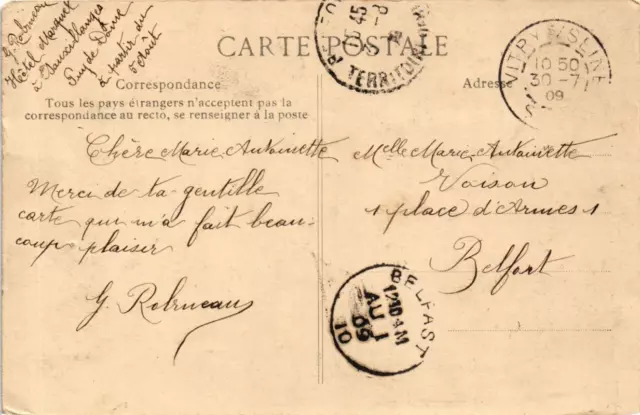 G. Robineau
Hôtel Marquet
à Sauxillanges
Puy de Dôme
à partir du
5 Août
CARTE POSTALE
Correspondance
Tous les pays étrangers n'acceptent pas la
correspondance au recto, se renseigner à la poste
Adresse
Chère Marie Antoinette
Merci de ta gentille
carte qui m'a fait beau-
coup plaisir
G. Robineau
Melle Marie Antoinette
Voison
1 place d'Armes 1
Belfort
45
TERRITOIRE
VITRY S/SEINE
10 50
30 -7
09
BELFAST
12 10 AM
AU 1
09
10